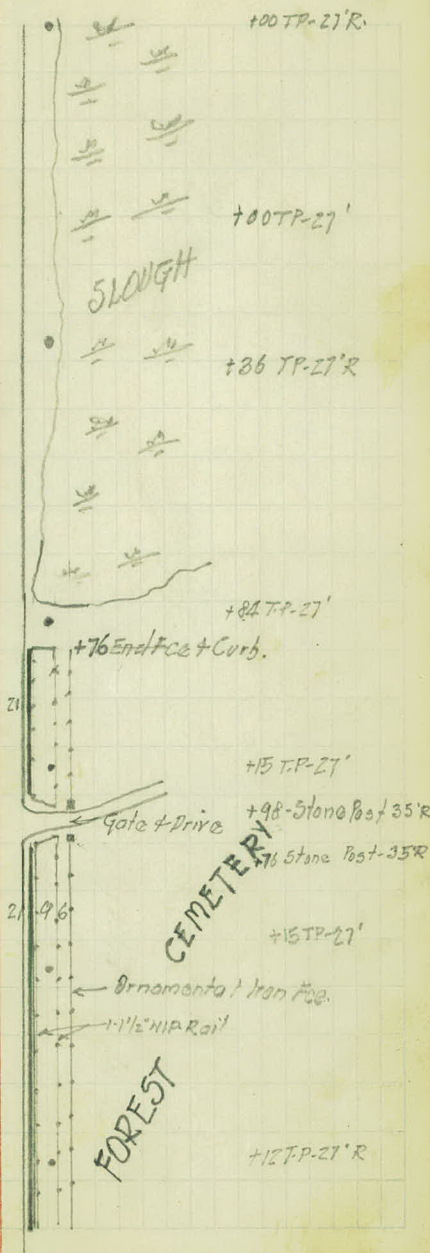 +00 TP-27'R.
+00 TP-27'
SLOUGH
+36 TP-27'R
+84 T.P-27'
+76 End Fce + Curb.
21
+15 T.P-27'
+98-Stone Post 35'R
Gate + Drive
+76 Stone Post-35'R
CEMETERY
21 9 6
+15 TP-27'
Ornamental Iron Fce.
1-1½" HIP Rail
FOREST
+12 T.P-27'R